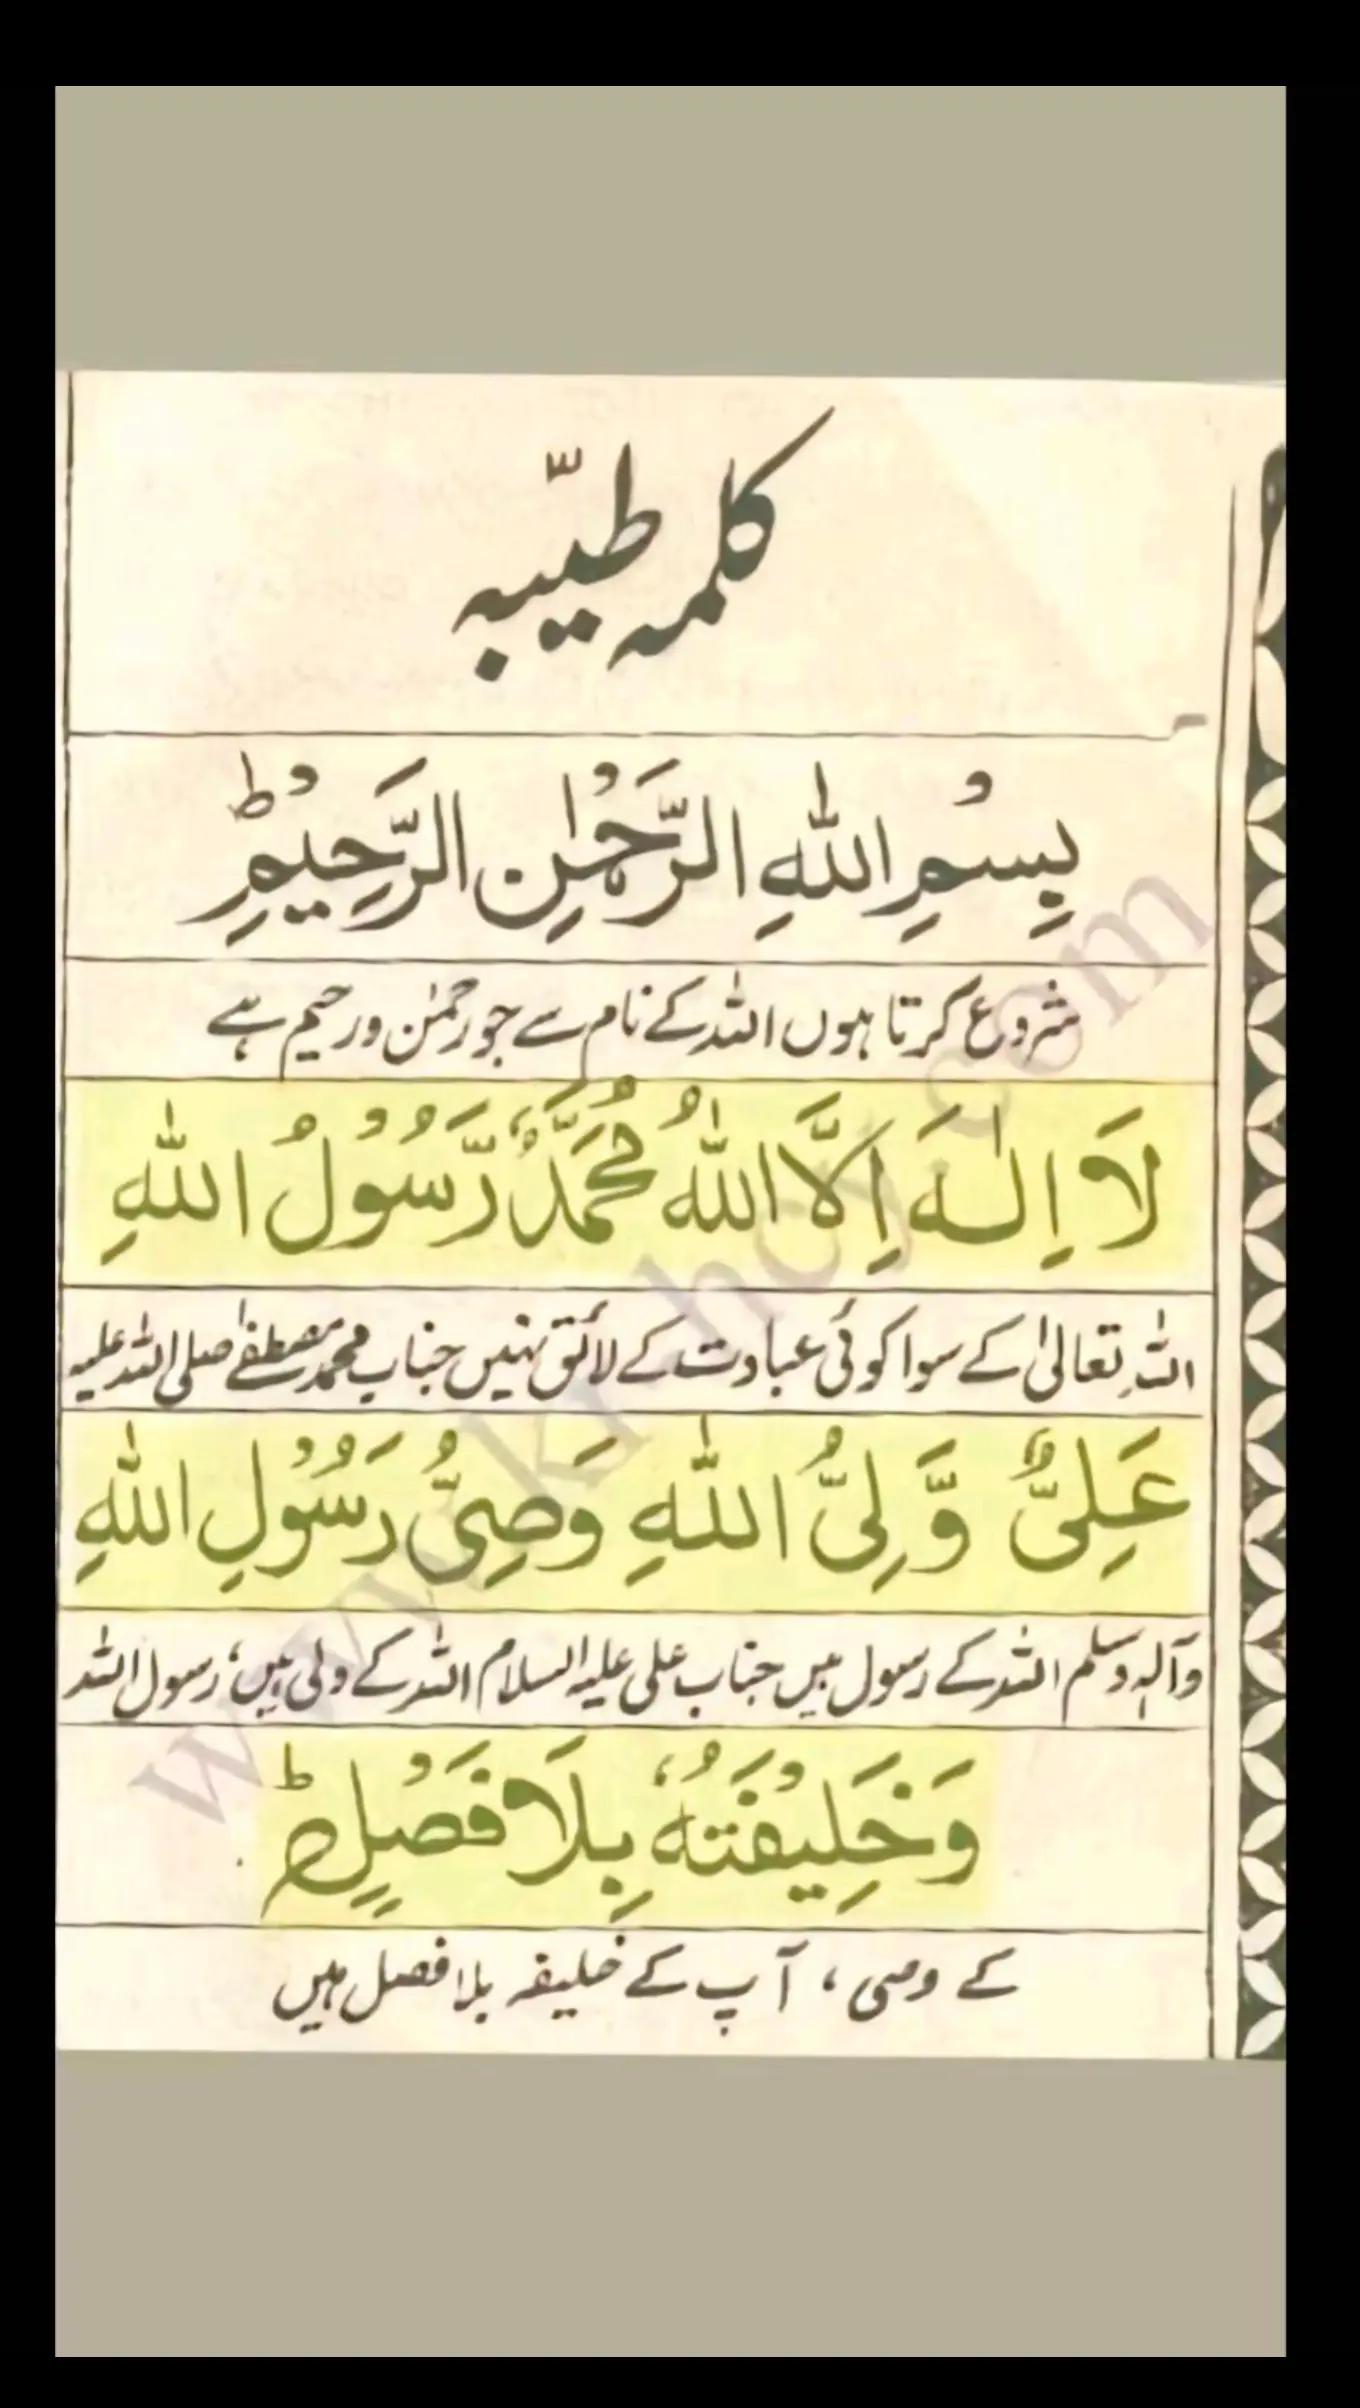 کلمہ طیّبہ
بِسْمِ اللّٰهِ الرَّحْمٰنِ الرَّحِيْمِؕ
شروع کرتا ہوں اللہ کے نام سے جو رحمٰن و رحیم ہے
لَا اِلٰهَ اِلَّا اللّٰهُ مُحَمَّدٌ رَّسُوْلُ اللّٰهِ
اللہ تعالیٰ کے سوا کوئی عبادت کے لائق نہیں جناب محمد مصطفےٰ صلی اللہ علیہ
عَلِيٌّ وَّلِيُّ اللّٰهِ وَصِيُّ رَسُوْلِ اللّٰهِ
وآلہٖ وسلم اللہ کے رسول ہیں جناب علی علیہ السلام اللہ کے ولی ہیں، رسول اللہ
وَخَلِيْفَتُهٗ بِلَا فَصْلٍؕ
کے وصی، آپ کے خلیفہ بلا فصل ہیں